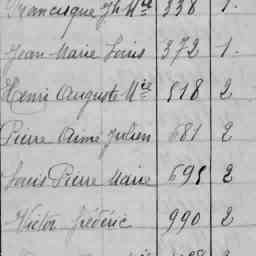 Francisque Jh Mie 338 1.
Jean Marie Louis 372 1.
Henri Auguste Mie 518 2
Pierre Aimé Julien 681 2
Louis Pierre Marie 695 2
Victor Frédéric 990 2